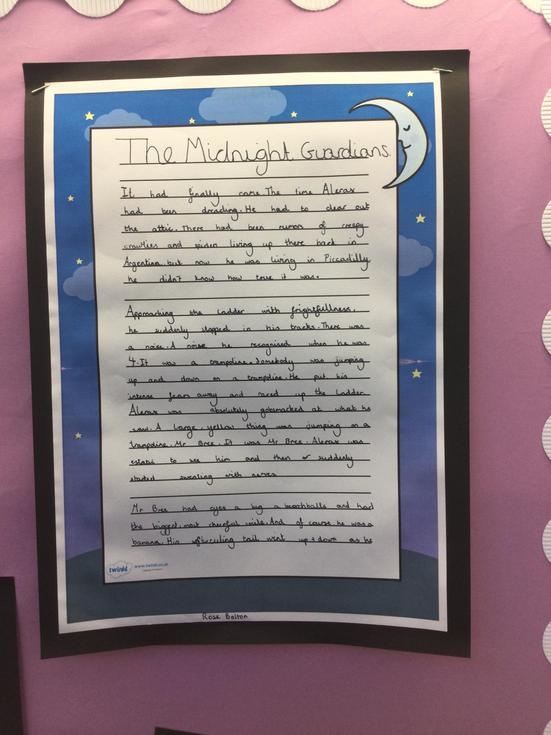 The Midnight Guardians.
It had finally come. The time Alerax
had been dreading. He had to clear out
the attic. There had been rumors of creepy
crawlies and spiders living up there back in
Argentina but now he was living in Piccadilly
he didn't know how true it was.
Approaching the ladder with frightfullness,
he suddenly stopped in his tracks. There was
a noise. A noise he recognised when he was
4. It was a trampoline. Somebody was jumping
up and down on a trampoline. He put his
intense fears away and raced up the ladder.
Alerax was absolutely gobsmacked at what he
saw. A large yellow thing was jumping on a
trampoline. Mr Bree. It was Mr Bree. Alerax was
to see him and then suddenly
started sweating with nerves.
Mr Bree had eyes a big a beachballs and had
the biggest, most cheerful smile. And of course he was a
banana. His tail went up + down as he
twinkl www.twinkl.co.uk
Rose Bolton